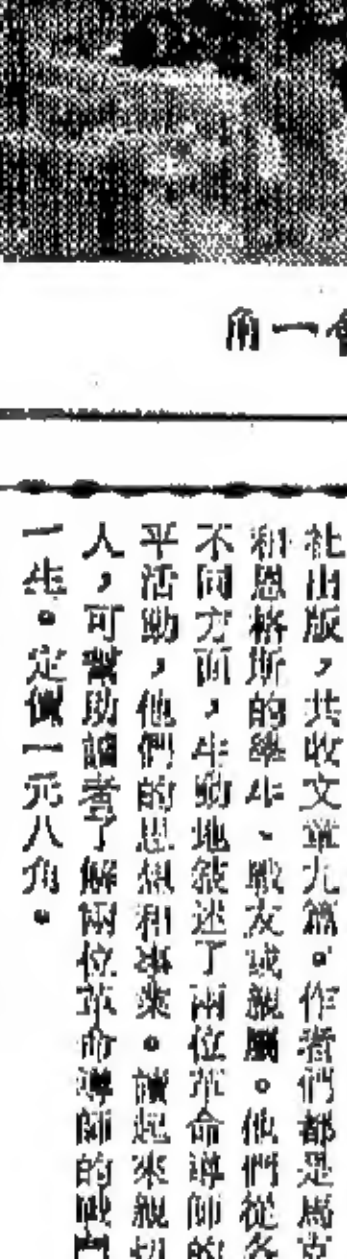 角一
社出版，共收文章九篇。作者們都是馬克
和恩格斯的學生、戰友或親屬。他們從各
不同方面，生動地敍述了兩位革命導師的
平活動，他們的思想和事業。讀起來親切
人，可幫助讀者了解兩位革命導師的戰鬥
一生。定價一元八角。